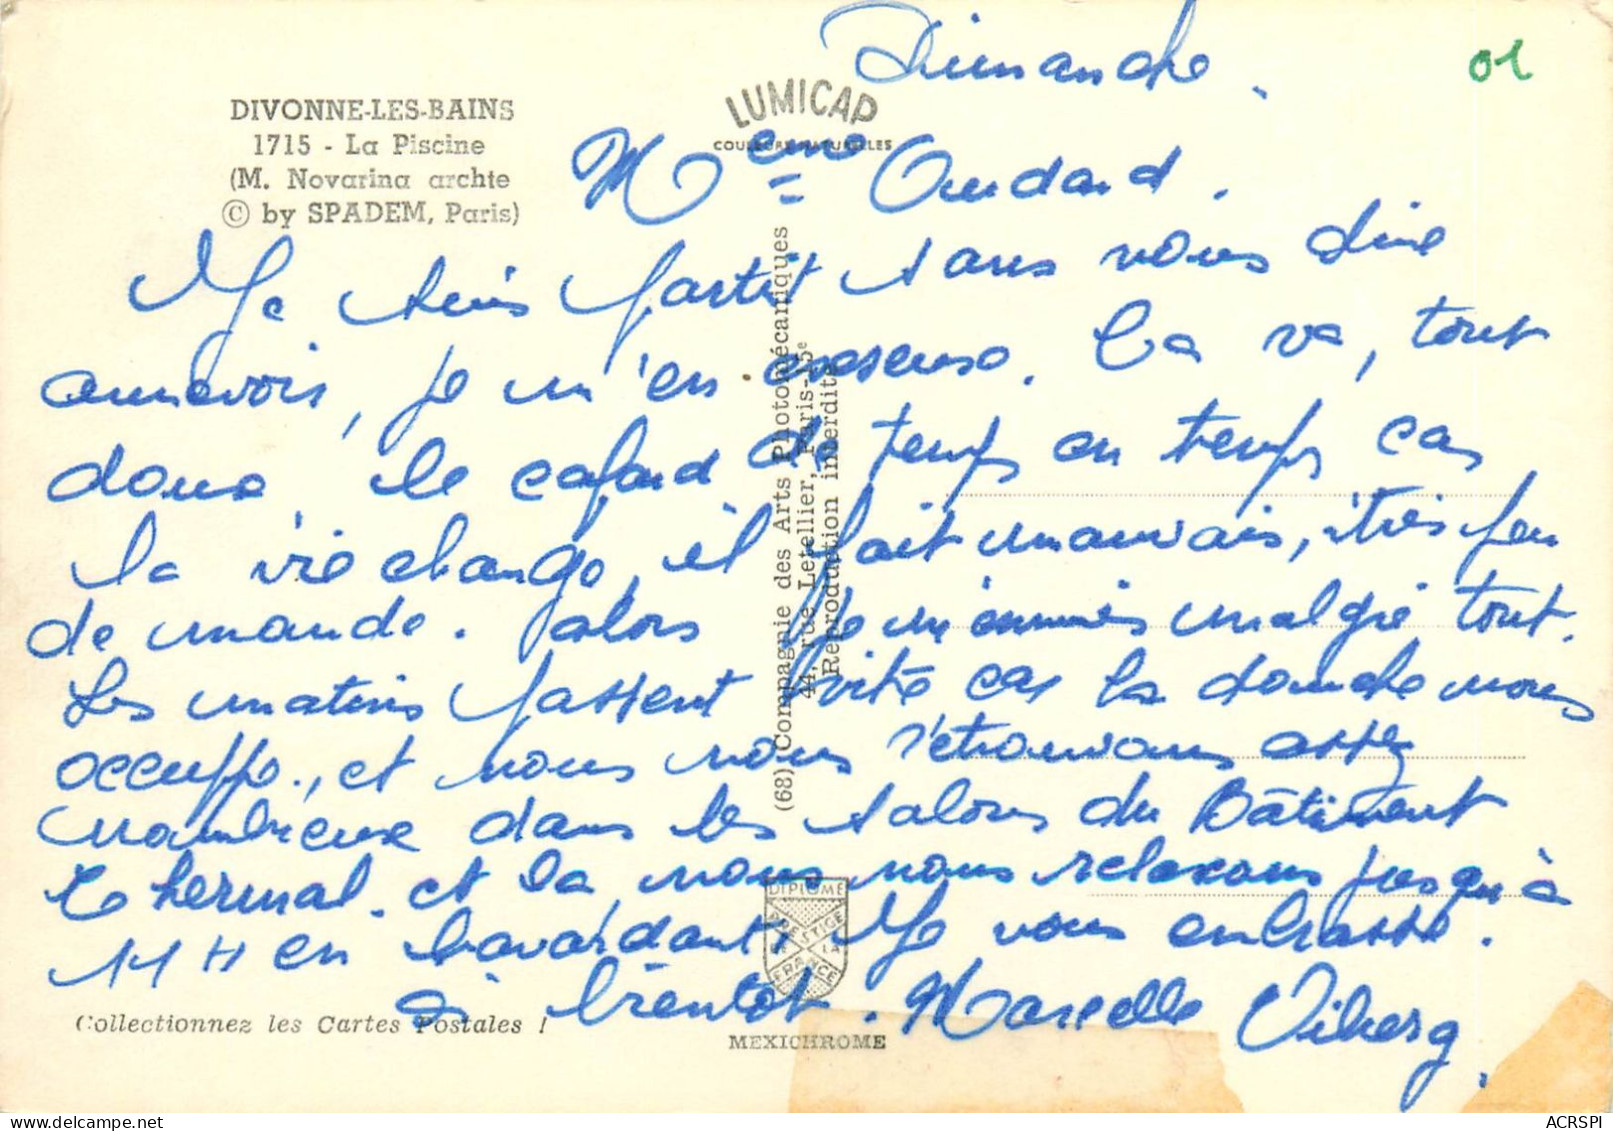 Dimanche.
01
DIVONNE-LES-BAINS
1715 - La Piscine
(M. Novarina archte
© by SPADEM, Paris)
LUMICAP
COULEURS NATURELLES
Mme Oudard.
Je suis partit sans vous dire
aurevoir, je m'en excuse. Ca va, tout
doux le cafard de temps en temps car
la vie change, il fait mauvais, très peu
de monde. alors je m'ennuies malgré tout.
Les matins passent vite car la douche nous
occuppe, et nous nous retrouvons assez
nombreux dans les salons du Bâtiment
thermal. et la, nous nous relaxons jusqu'à
11 H en bavardant, Je vous embrasse.
à bientôt. Marcelle Viberg.
(68) Compagnie des Arts Photomécaniques
44, rue Letellier, Paris-15e
Reproduction interdite
DIPLOME
PRESTIGE
DE LA
FRANCE
Collectionnez les Cartes Postales !
MEXICHROME
ACRSPI